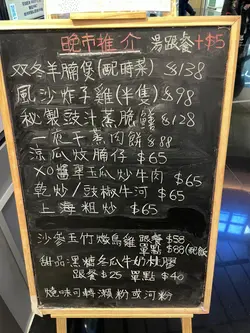 晚市推介 湯跟餐+$5
双冬羊腩煲(配時菜) $138
風沙炸子雞(半隻) $98
秘製豉汁蒸脆鱔 $128
一夜干蒸肉餅 $88
涼瓜炆腩仔 $65
XO醬翠玉瓜炒牛肉 $65
乾炒/豉椒牛河 $65
上海粗炒 $65
沙參玉竹燉烏雞 跟餐 $58
單點 $88(配飯)
甜品:黑糖冬瓜牛奶桃膠
跟餐 $25 單點 $40
燒味可轉瀨粉或河粉